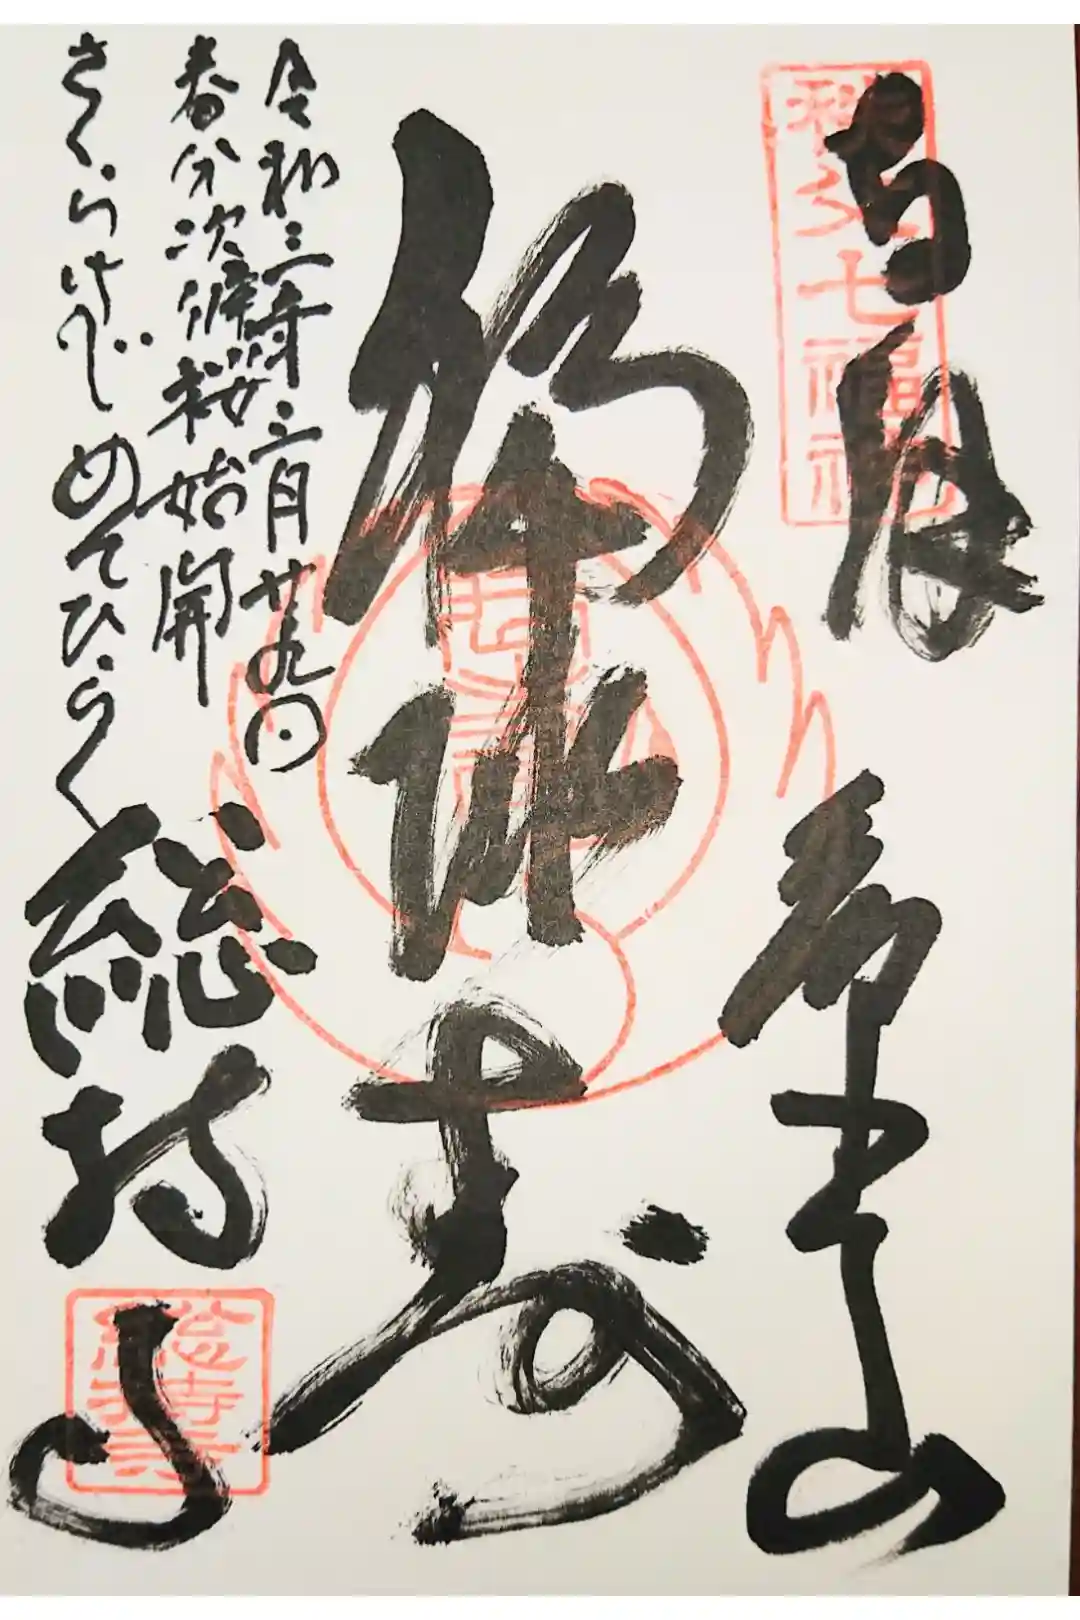 秩父七福神
福禄寿
令和三年三月廿九日
春分次候桜始開
さくらはじめてひらく
総持寺
総持寺